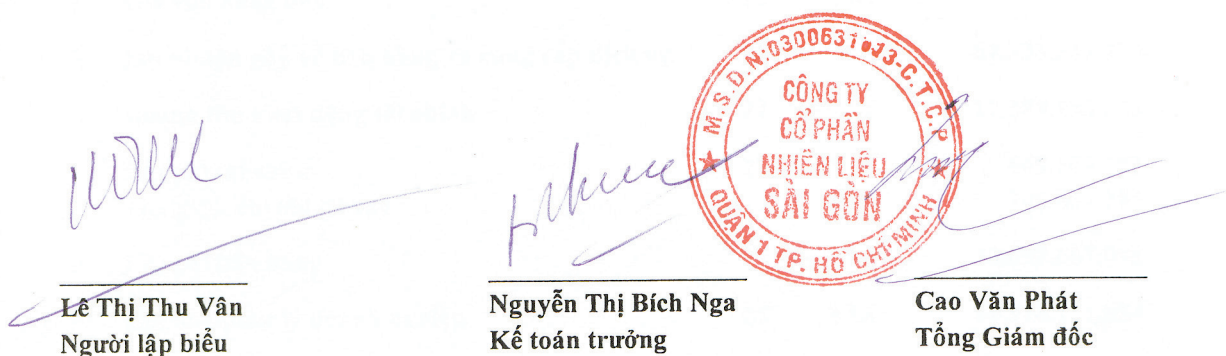 CÔNG TY
CỔ PHẦN
NHIÊN LIỆU
SÀI GÒN
QUẬN 1 TP. HỒ CHÍ MINH
Lê Thị Thu Vân
Người lập biểu
Nguyễn Thị Bích Nga
Kế toán trưởng
Cao Văn Phát
Tổng Giám đốc